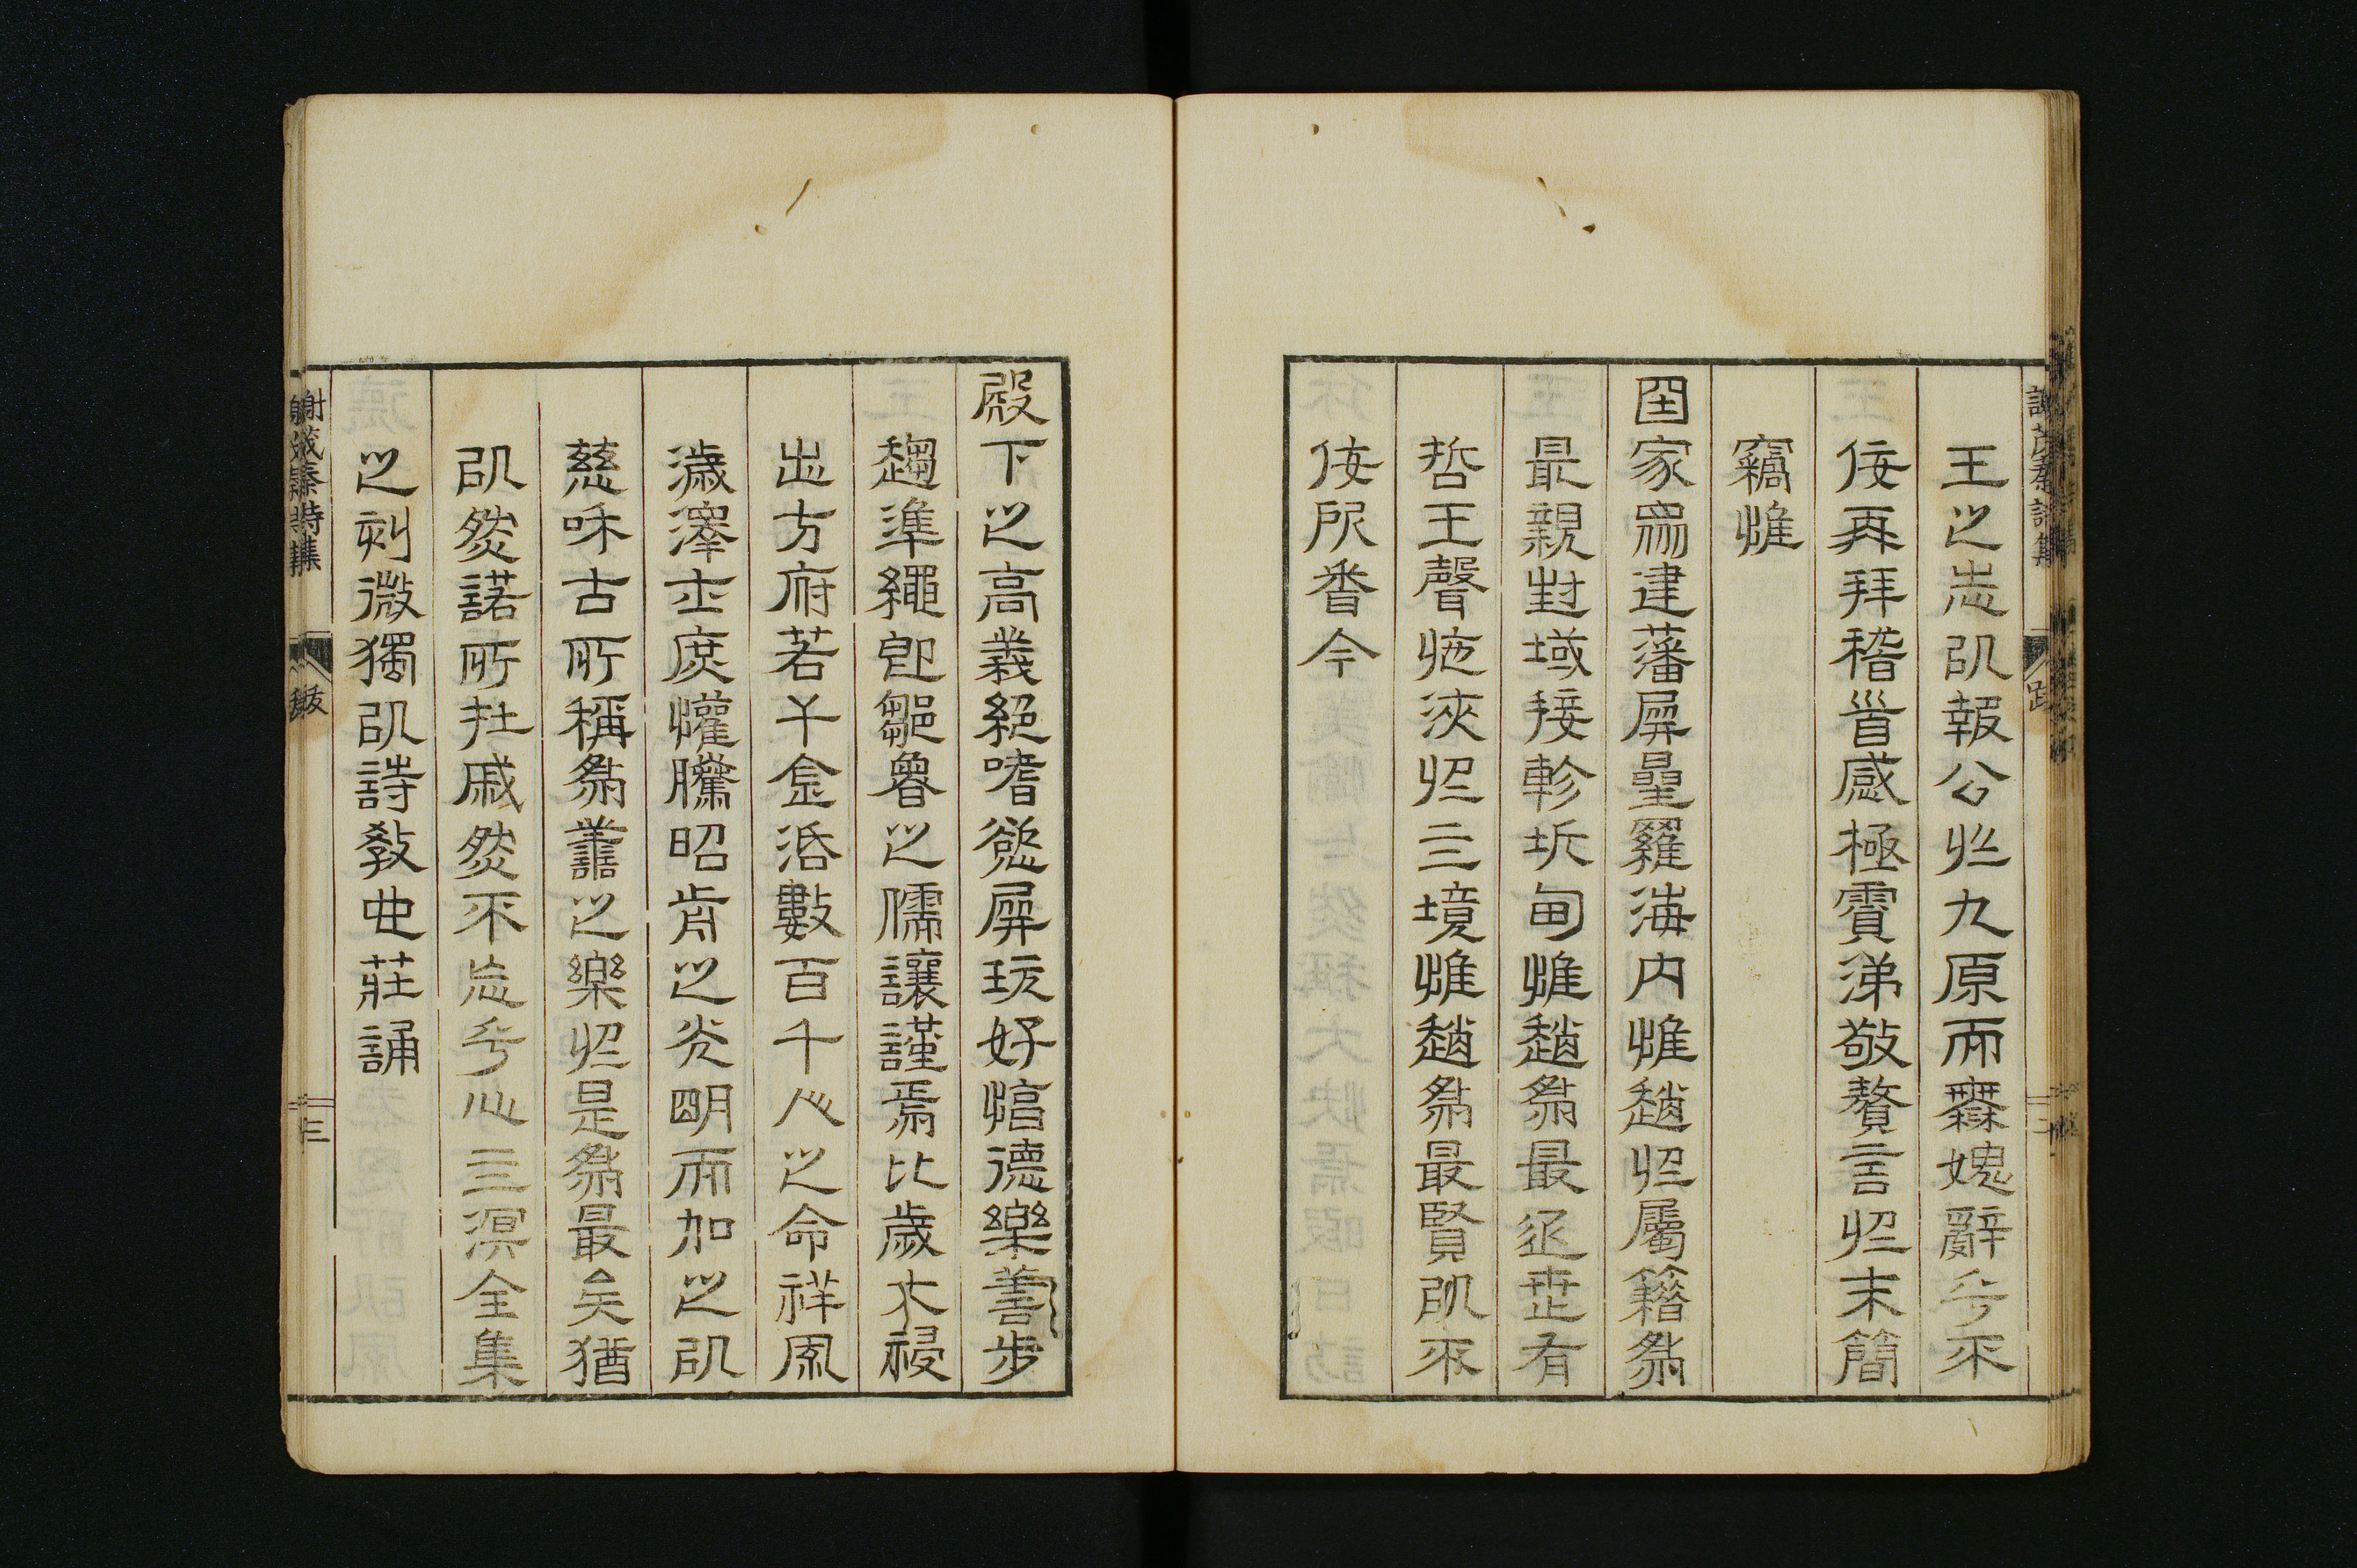 王之志㕥報公於九原而無媿辭乎不
佞再拜稽首感極賈涕敬贅言於末簡
竊惟
国家為建藩屏星羅海内惟趙於屬籍為
最親封域接軫圻甸惟趙為最近世有
哲王聲施浹於三境惟趙為最賢㕥不
佞所睹今
殿下之高義絕嗜慾屏玩好惇德樂善步
趨準繩卽鄒魯之儒讓謹焉比歲大祲
出方府若干金活數百千人之命祥風
濊澤士庶懽騰昭肯之光明而加之㕥
慈和古所稱為善之樂於是為最矣猶
㕥然諾所在戚然不忘乎心三溟全集
之刻微獨㕥詩教典莊誦
謝茂秦詩集 跋 二
謝茂秦詩集 跋 三